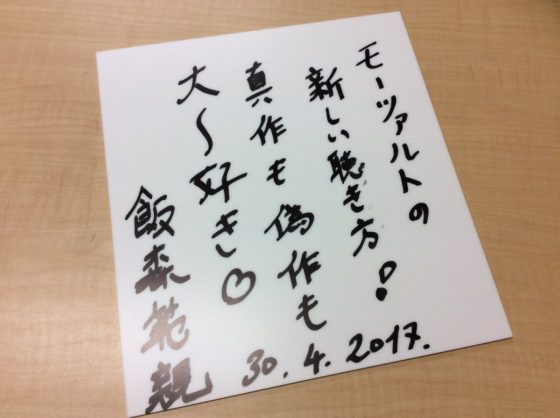 モーツァルトの
新しい聴き方!
真作も偽作も
大〜好き♡
飯森範親
30.4.2017.